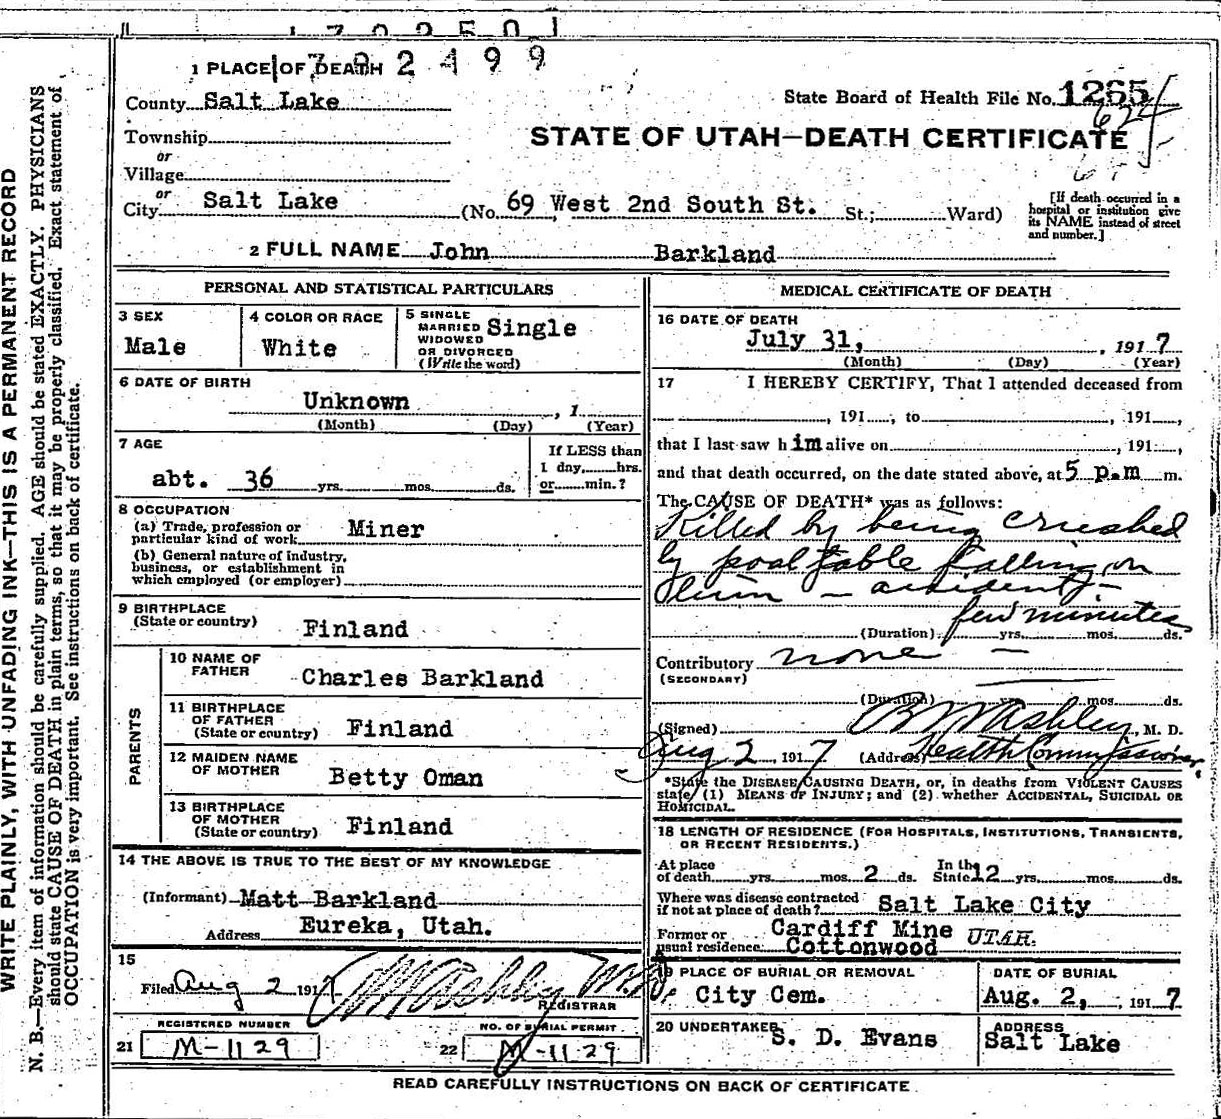 1792501
1792499
1 PLACE OF DEATH
County Salt Lake
State Board of Health File No. 1265
624
Township
or
Village
or
City Salt Lake
STATE OF UTAH—DEATH CERTIFICATE
(No. 69 West 2nd South St. St.; Ward)
[If death occurred in a
hospital or institution give
its NAME instead of street
and number.]
2 FULL NAME John Barkland
PERSONAL AND STATISTICAL PARTICULARS
3 SEX
Male
4 COLOR OR RACE
White
5 SINGLE
MARRIED
WIDOWED
OR DIVORCED
(Write the word)
Single
6 DATE OF BIRTH
Unknown , 1
(Month) (Day) (Year)
7 AGE
abt. 36 yrs. mos. ds.
If LESS than
1 day, hrs.
or min.?
8 OCCUPATION
(a) Trade, profession or
particular kind of work Miner
(b) General nature of industry,
business, or establishment in
which employed (or employer)
9 BIRTHPLACE
(State or country)
Finland
PARENTS
10 NAME OF
FATHER
Charles Barkland
11 BIRTHPLACE
OF FATHER
(State or country)
Finland
12 MAIDEN NAME
OF MOTHER
Betty Oman
13 BIRTHPLACE
OF MOTHER
(State or country)
Finland
14 THE ABOVE IS TRUE TO THE BEST OF MY KNOWLEDGE
(Informant) Matt Barkland
Address Eureka, Utah.
15
Filed Aug 2 1917
Ashley M.D.
REGISTRAR
REGISTERED NUMBER
21 M-1129
NO. OF BURIAL PERMIT
22 M-1129
MEDICAL CERTIFICATE OF DEATH
16 DATE OF DEATH
July 31, , 1917
(Month) (Day) (Year)
17 I HEREBY CERTIFY, That I attended deceased from
, 191 , to , 191 ,
that I last saw him alive on , 191 ,
and that death occurred, on the date stated above, at 5 p.m m.
The CAUSE OF DEATH* was as follows:
Killed by being crushed
by pool table falling on
him — accident —
few minutes
(Duration) yrs. mos. ds.
Contributory none —
(SECONDARY)
(Duration) yrs. mos. ds.
(Signed) Ashley, M. D.
Aug 2, 1917 (Address) Health Commissioner.
*State the DISEASE CAUSING DEATH, or, in deaths from VIOLENT CAUSES
state (1) MEANS OF INJURY; and (2) whether ACCIDENTAL, SUICIDAL OR
HOMICIDAL.
18 LENGTH OF RESIDENCE (FOR HOSPITALS, INSTITUTIONS, TRANSIENTS,
OR RECENT RESIDENTS.)
At place
of death yrs. mos. 2 ds.
In the
State 12 yrs. mos. ds.
Where was disease contracted
if not at place of death? Salt Lake City
Former or
usual residence Cardiff Mine
Cottonwood UTAH.
19 PLACE OF BURIAL OR REMOVAL
City Cem.
DATE OF BURIAL
Aug. 2, 1917
20 UNDERTAKER
S. D. Evans
ADDRESS
Salt Lake
READ CAREFULLY INSTRUCTIONS ON BACK OF CERTIFICATE
WRITE PLAINLY, WITH UNFADING INK—THIS IS A PERMANENT RECORD
N. B.—Every item of information should be carefully supplied. AGE should be stated EXACTLY. PHYSICIANS
should state CAUSE OF DEATH in plain terms, so that it may be properly classified. Exact statement of
OCCUPATION is very important. See instructions on back of certificate.